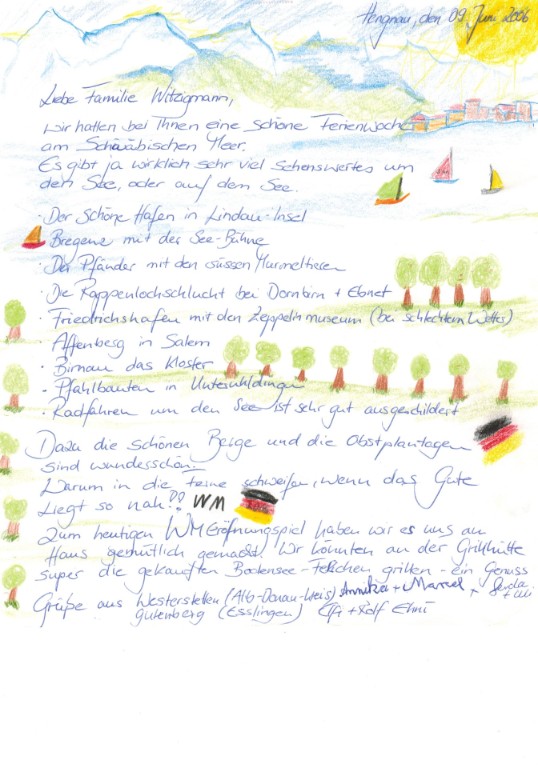 Hengnau, den 09. Juni 2006
Liebe Familie Witzigmann,
wir hatten bei Ihnen eine schöne Ferienwoche
am Schwäbischen Meer.
Es gibt ja wirklich sehr viel Sehenswertes um
den See, oder auf dem See.
· Der schöne Hafen in Lindau-Insel
· Bregenz mit der See-Bühne
· Der Pfänder mit den süssen Murmeltieren
· Die Rappenlochschlucht bei Dornbirn + Ebnet
· Friedrichshafen mit den Zeppelinmuseum (bei schlechtem Wetter)
· Affenberg in Salem
· Birnau das Kloster
· Pfahlbauten in Unteruhldingen
· Radfahren um den See ist sehr gut ausgeschildert
Dazu die schönen Berge und die Obstplantagen
sind wunderschön.
Warum in die Ferne schweifen, wenn das Gute
liegt so nah?! WM
Zum heutigen WM Eröfnungspiel haben wir es uns am
Haus gemütlich gemacht. Wir konnten an der Grillhütte
super die gekauften Bodensee-Felchen grillen - ein Genuss
Grüße aus Westerstetten (Alb-Donau-Kreis) Annika + Marcel +
Gutenberg (Esslingen) + Rolf